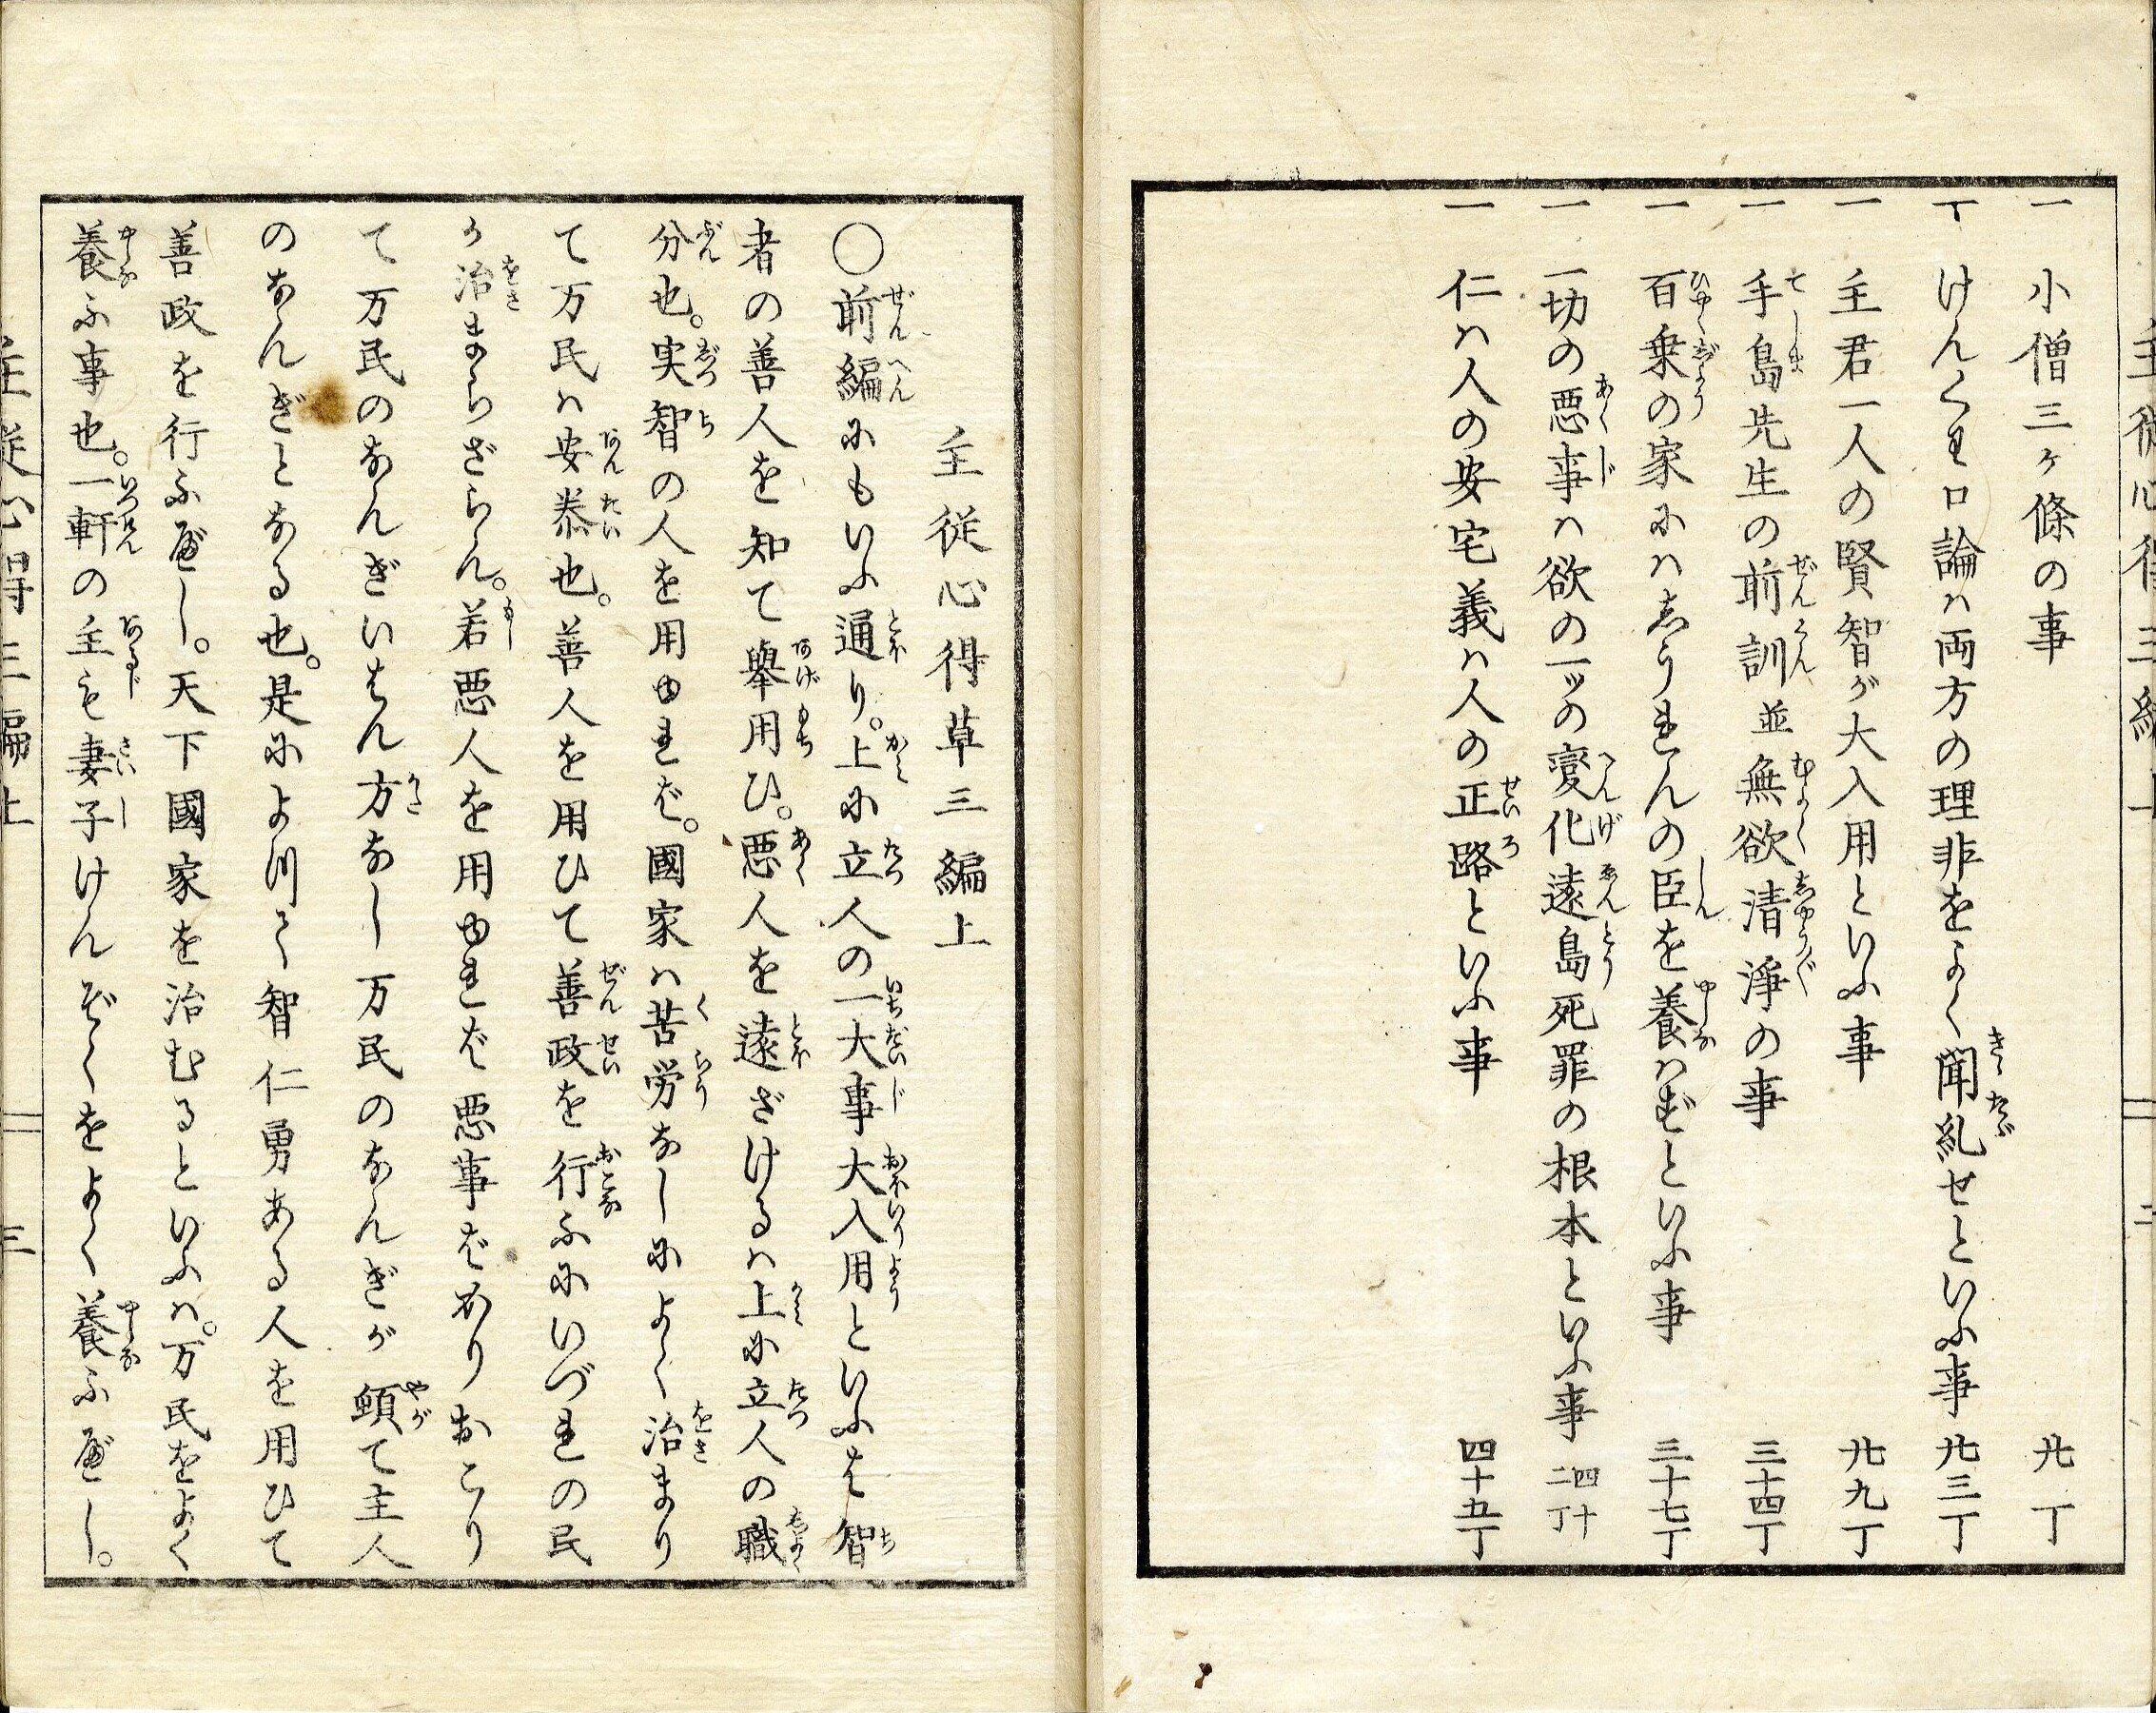 一 小僧三ケ條の事 廿丁
一 けんくわ口論ハ両方の理非をよく聞糺せといふ事 廿三丁
一 主君一人の賢智が大入用といふ事 廿九丁
一 手島先生の前訓並無欲清淨の事 三十四丁
一 百乗の家にハしうれんの臣を養ハずといふ事 三十七丁
一 一切の悪事ハ欲の一ツの変化遠島死罪の根本といふ事 四十二丁
一 仁ハ人の安宅義ハ人の正路といふ事 四十五丁
主従心得草三編上
○前編にもいふ通り。上に立人の一大事大入用といふは智
者の善人を知て擧用ひ。悪人を遠ざけるハ上に立人の職
分也。実智の人を用ゆれば。國家ハ苦労なしによく治まり
て万民ハ安泰也。善人を用ひて善政を行ふにいづれの民
か治まらざらん。若悪人を用ゆれば悪事ばかりおこり
て万民のなんぎいはん方なし万民のなんぎが頓て主人
のなんぎとなる也。是によつて智仁勇ある人を用ひて
善政を行ふべし。天下國家を治むるといふハ。万民をよく
養ふ事也。一軒の主も妻子けんぞくをよく養ふべし。
主従心得三編上 三